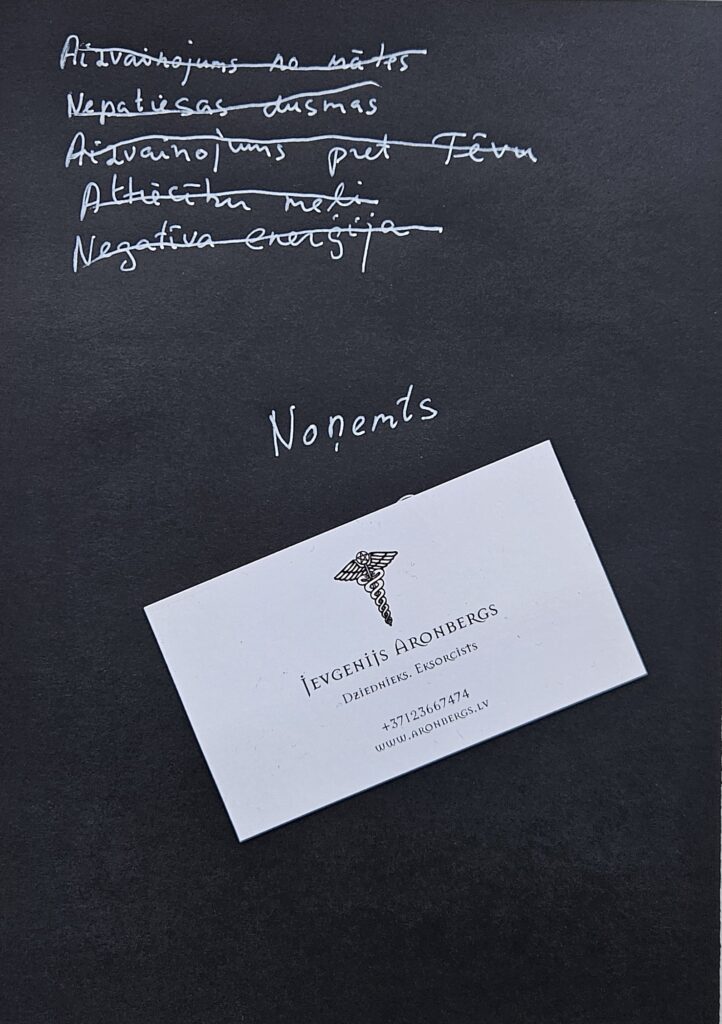 Aizvainojums no mātes
Nepatiesas dusmas
Aizvainojums pret Tēvu
Attiecību meli
Negatīva enerģija
Noņemts
Jevgenijs Aronbergs
Dziednieks. Eksorcists
+37123667474
www.aronbergs.lv